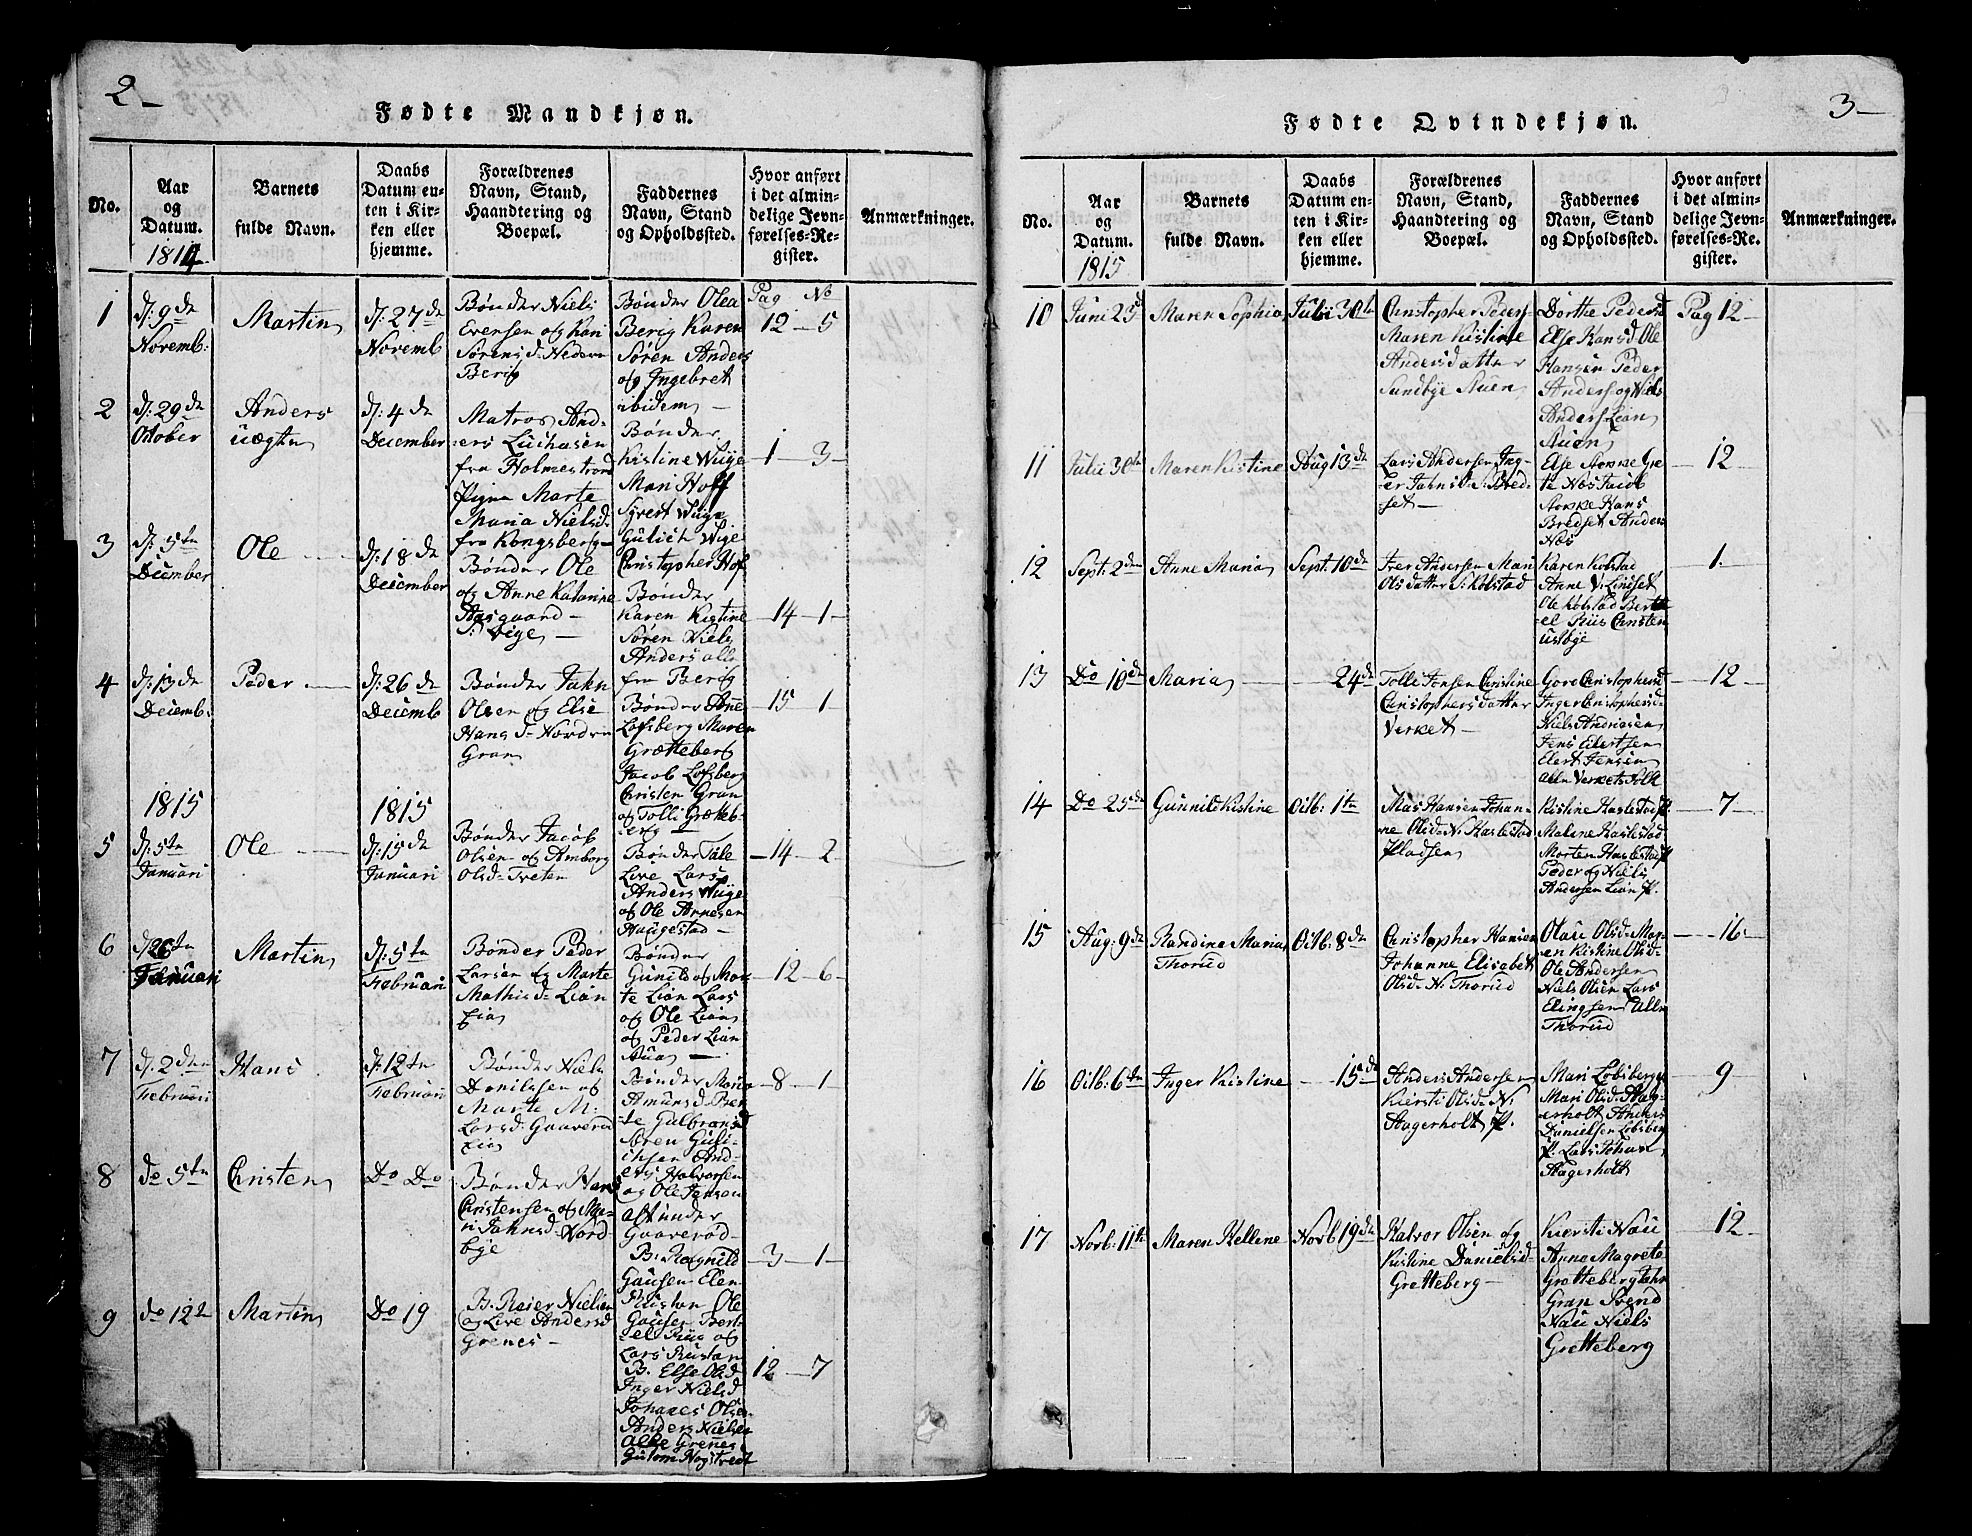 2
Fødte Mandkjøn.
No.
Aar
og
Datum.
1814
Barnets
fulde Navn.
Daabs
Datum en-
ten i Kir-
ken eller
hjemme.
Forældrenes
Navn, Stand,
Haandtering og
Boepæl.
Faddernes
Navn, Stand
og Opholdssted.
Hvor anført
i det almin-
delige Jevn-
førelses-Re-
gister.
Anmærkninger.
Pag No
1
d: 9de
Novemb:
Martin
d: 27de
Novemb
Bønder Niels
Evensen og Kari
Sørensd. Nedere
Berig
Bønder Olea
Berig Karen
Søren Anders
og Ingebret
ibidem
12 - 5
2
d: 29de
October
Anders
uægte
d: 4de
December
Matros And-
ers
fra Holmestrand
Pigen Marte
Maria Nielsd.
fra Kongsberg
Bønder
Kistine Wiige
Mari Hoff
Syvert Wiige
Gulich Wige
Christopher Hof
1 - 3
3
d: 5te
December
Ole
d: 18de
December
Bønder Ole
og Anne Katarine
Aasgaard
Bønder
Karen Kistine
Søren Niels
Anders alle
fra Berg
14 - 1
4
d: 13de
Decemb:
Peder
d: 26de
Decemb
Bønder Jahn
Olsen og Else
Hansd. Nordre
Gran
Bønder Ane
Lofsberg Maren
Grætteberg
Jacob Lofsberg
Christen Gran
og Tolli Grætteb-
erg
15 - 1
1815
1815
5
d: 5te
Januari
Ole
d: 15de
Januari
Bønder Jacob
Olsen og Amborg
Olsd. Tveten
Bønder Tale
Live Lars
Anders Wiige
og Ole Arnesen
Haugestad
14 - 2
6
Januari
Martin
d: 5te
Februari
Bønder Peder
Larsen og Marte
Mathisd. Lian
Eia
Bønder
Gunild og Mar-
te Lian Lars
og Ole Lian
og Peder Lian
12 - 6
7
d. 2den
Februari
Hans
d. 12te
Februari
Bønder Niels
Danielsen og
Marte M:
Larsd. Gaaserud
Eia
Bønder Maria
Amunsd. Ber-
te Gulbransd
Søren Guli-
chsen And-
ers Halvorsen
og Ole Jensen
alt under
Gaaserød
8 - 1
8
de 5te
Christen
Do Do
Bønder Hans
Christensen og Ma-
ri Jahnsd. Nord-
bye
B. Ragnild
Gausen Elen
Rustan Ole
Gausen Bert-
el Ruu og
Lars Rustan
3 - 1
9
do 12te
Martin
Do 19
B. Reier Nielsen
og Live Andersd
Grenes
B. Else Olsd
Inger Nielsd
Johanes Olsen
Anders Nielsen
Alle Grenes
12 - 7
3
Fødte Qvindekjøn.
No.
Aar
og
Datum.
1815
Barnets
fulde Navn.
Daabs
Datum en-
ten i Kir-
ken eller
hjemme.
Forældrenes
Navn, Stand,
Haandtering og
Boepæl.
Faddernes
Navn, Stand
og Opholdssted.
Hvor anført
i det almin-
delige Jevn-
førelses-Re-
gister.
Anmærkninger.
10
Juni 25d
Maren Sophia
Julii 30te
Christopher Peders-
Maren Kistine
Andersdatter
Sundbye Auen
Dorthe Pedersd
Else Hansd Ole
Hansen Peder
Anders og Niels
Anders Lian
Auen
Pag 12
11
Julii 30te
Maren Kistine
Aug 13de
Lars Andersen Ing-
er Jahnsd. S: Bred-
set
Else Aorke Gre
te Næs Jacob
Aorke Hans
Bredset Anders
Næs
12
12
Sept: 2den
Anne Maria
Sept: 10de
Iver Andersen Mari
Olsdatter S: Kolstad
Karen Kolstad
Anne V. Linset
Ole Kolstad Bert
el Ruis Christen
Ustbye
1
13
Do 10de
Maria
24de
Tolli Jonsen Christine
Christophersdatter
Verket
Gore Christophersd
Inger Christophersd.
Niels Andreasen
Jens Eilertsen
Elert Jensen
Alle Verkets Folk
12
14
Do 25de
Gunnild Kistine
Octb: 1te
Mas Hansen Johan-
ne Olsd. N: Haslestad
Pladsen
Kistine Haslestad P.
Maline Haslestad
Morten Haslestad P.
Peder og Niels
Andersen Lian P.
7
15
Aug: 9de
Randine Maria
Thorud
Octb: 8de
Christopher Hansen
Johanne Elisabet
Olsd. N: Thorud
Olau Olsd. Mar-
en Kistine Olsd.
Ole Andersen
Niels Olsen Lars
Elingsen Alle
Thorud
16
16
Octb: 6te
Inger Kistine
15de
Anders Andersen
Kiersti Olsd. N:
Hagerholt P.
Mari Lobsberg
Mari Olsd. Hag-
erholt Anders
Danielsen Lobsberg
P. Lars Johan
Hagerholt
9
17
Novb: 11te
Maren Hellene
Novb 19de
Halvor Olsen og
Kistine Danielsd
Gretteberg
Kiersti Nau
Anne Magrete
Gretteberg Jahn
Gran Svend
Nau Niels
Gretteberg
12